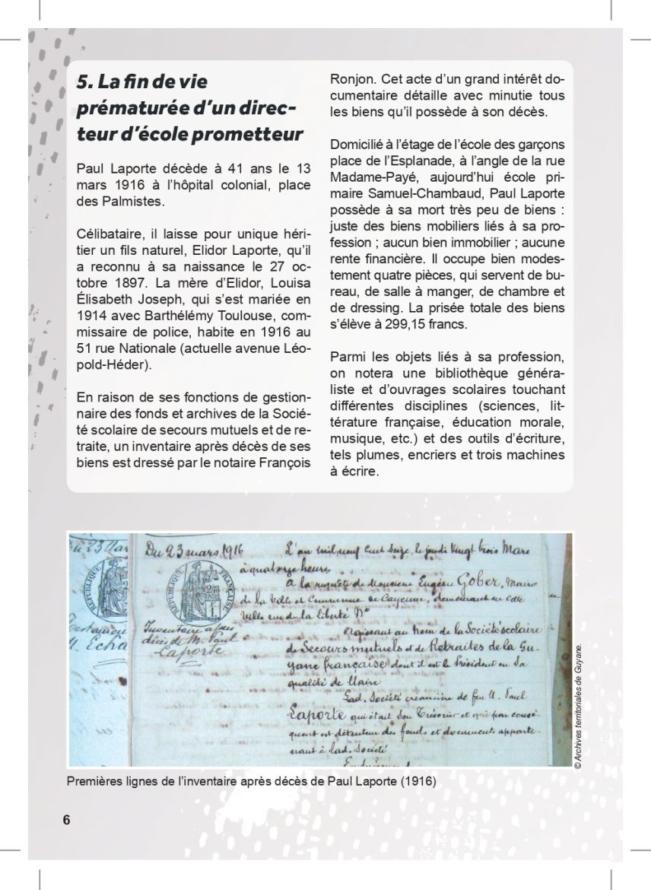 5. La fin de vie
prématurée d'un direc-
teur d'école prometteur
Paul Laporte décède à 41 ans le 13
mars 1916 à l'hôpital colonial, place
des Palmistes.
Célibataire, il laisse pour unique héri-
tier un fils naturel, Elidor Laporte, qu'il
a reconnu à sa naissance le 27 oc-
tobre 1897. La mère d'Elidor, Louisa
Élisabeth Joseph, qui s'est mariée en
1914 avec Barthélémy Toulouse, com-
missaire de police, habite en 1916 au
51 rue Nationale (actuelle avenue Léo-
pold-Héder).
En raison de ses fonctions de gestion-
naire des fonds et archives de la Socié-
té scolaire de secours mutuels et de re-
traite, un inventaire après décès de ses
biens est dressé par le notaire François
Ronjon. Cet acte d'un grand intérêt do-
cumentaire détaille avec minutie tous
les biens qu'il possède à son décès.
Domicilié à l'étage de l'école des garçons
place de l'Esplanade, à l'angle de la rue
Madame-Payé, aujourd'hui école pri-
maire Samuel-Chambaud, Paul Laporte
possède à sa mort très peu de biens :
juste des biens mobiliers liés à sa pro-
fession ; aucun bien immobilier ; aucune
rente financière. Il occupe bien modes-
tement quatre pièces, qui servent de bu-
reau, de salle à manger, de chambre et
de dressing. La prisée totale des biens
s'élève à 299,15 francs.
Parmi les objets liés à sa profession,
on notera une bibliothèque généra-
liste et d'ouvrages scolaires touchant
différentes disciplines (sciences, lit-
térature française, éducation morale,
musique, etc.) et des outils d'écriture,
tels plumes, encriers et trois machines
à écrire.
Du 23 mars 1916
Inventaire après
décès de M. Paul
Laporte
L'an mil neuf cent seize, le jeudi vingt trois Mars
à quatorze heures
à la requête de Monsieur Eugène Gober, Maire
de la Ville et Commune de Cayenne, demeurant en cette
Ville rue de la liberté N°
Agissant au nom de la Société scolaire
de Secours mutuels et de Retraites de la Gu-
yane française dont il est le Président en sa
qualité de Maire
Lad. Société créancière de feu M. Paul
Laporte qui était son Trésorier et qui par consé
quent est détenteur des fonds et documents apparte
nant à lad. Société
© Archives territoriales de Guyane.
Premières lignes de l'inventaire après décès de Paul Laporte (1916)
6